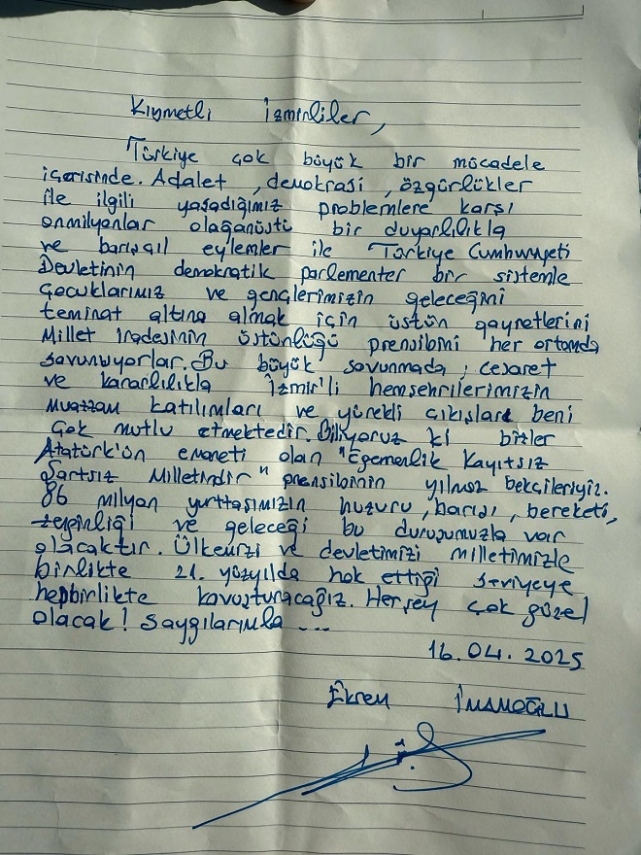 Kıymetli İzmirliler,
Türkiye çok büyük bir mücadele
içerisinde. Adalet, demokrasi, özgürlükler
ile ilgili yaşadığımız problemlere karşı
onmilyonlar olağanüstü bir duyarlılıkla
ve barışçıl eylemler ile Türkiye Cumhuriyeti
Devletinin demokratik parlementer bir sistemle
Çocuklarımız ve gençlerimizin geleceğini
teminat altına almak için üstün gayretlerini
Millet iradesinin üstünlüğü prensibini her ortamda
savunuyorlar. Bu büyük savunmada, cesaret
ve kararlılıkla İzmir'li hemşehrilerimizin
muazzam katılımları ve yürekli çıkışları beni
Çok mutlu etmektedir. Biliyoruz ki bizler
Atatürk'ün emaneti olan "Egemenlik Kayıtsız
Şartsız Milletindir" prensibinin yılmaz bekçileriyiz.
86 milyon yurttaşımızın huzuru, barışı, bereketi,
zenginliği ve geleceği bu duruşumuzla var
olacaktır. Ülkemizi ve devletimizi milletimizle
birlikte 21. yüzyılda hak ettiği seviyeye
hepbirlikte kavuşturacağız. Herşey çok güzel
olacak! Saygılarımla ...
16.04.2025
Ekrem İMAMOĞLU